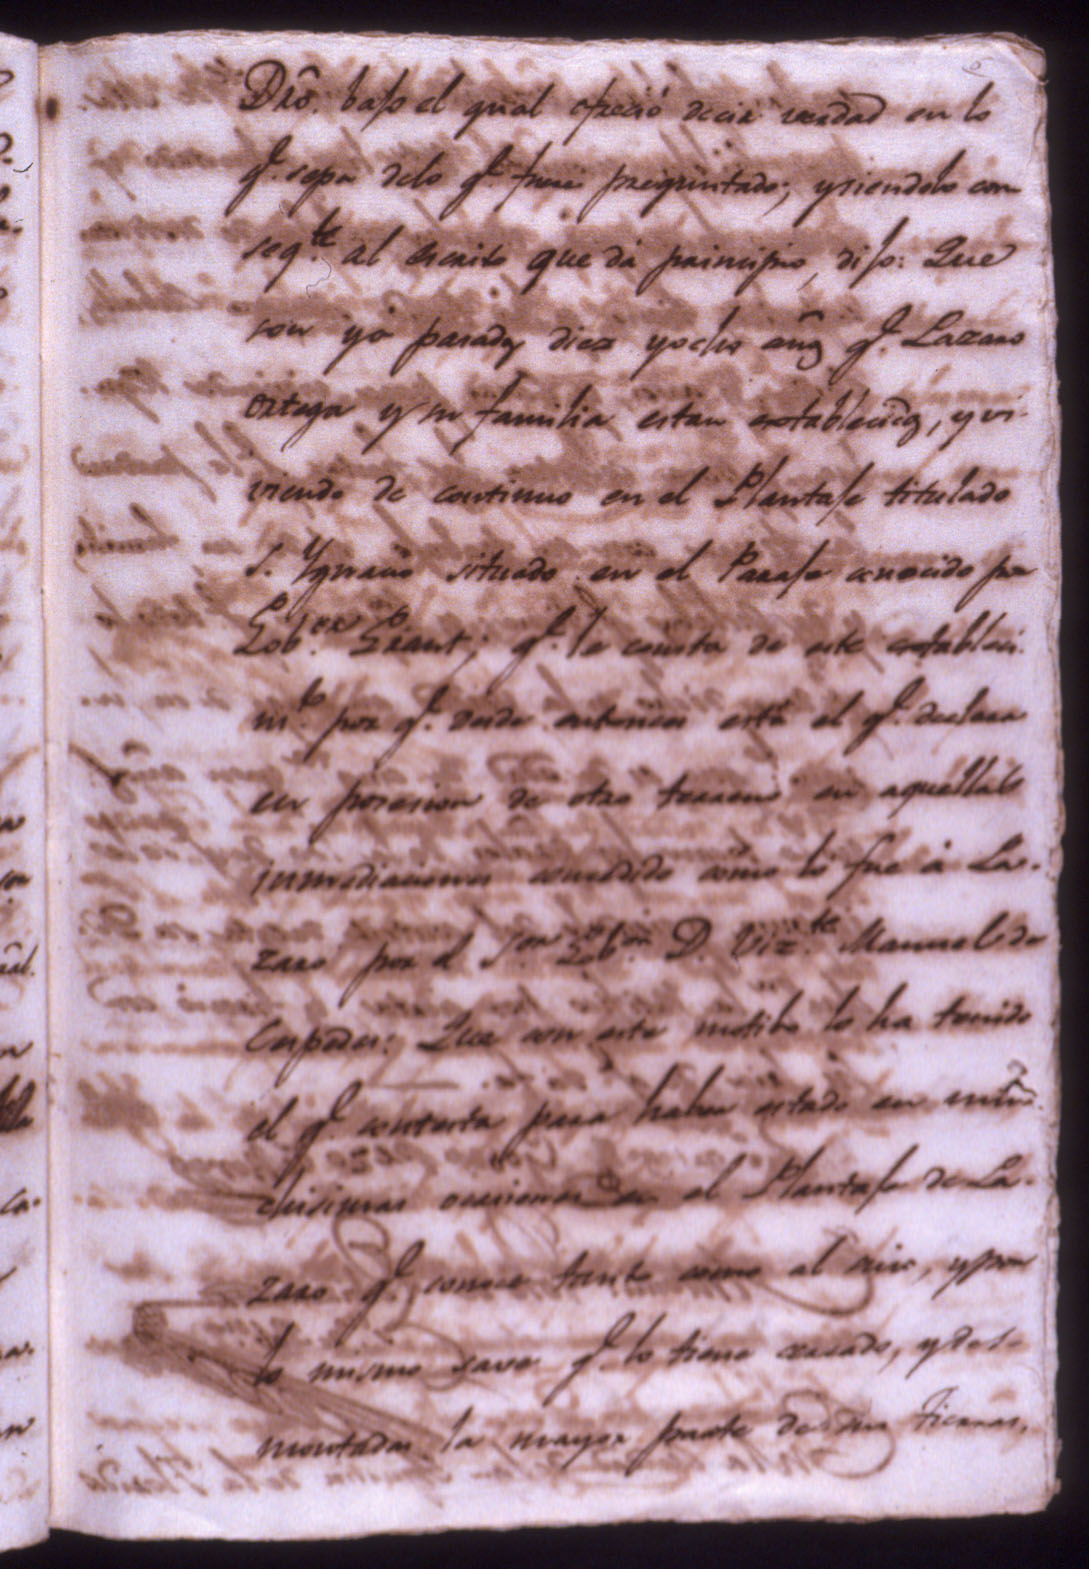 Dro. bajo el qual ofreció decir verdad en lo
q.e sepa delo q.e fuere preguntado; ysiendolo con
seq.te al escrito que dá principio, dijo: Que
son yá pasados diez yocho años q.e Lazaro
ortega y su familia estan establecidos, y vi-
viendo de continuo en el Plantaje titulado
S. Ygnacio situado en el Paraje conocido por
Gob.or Grant; q.e le consta de este estableci-
m.to por q.e desde entonces está el q.e declara
en posesion de otro terreno en aquellas
inmediaciones concedido como lo fue á La-
zaro por el S.or Gob.or D. Viz.te Manuel de
Cespedes: Que con este motibo lo ha tenido
el q.e contexta para haber estado en
chisimas ocasiones en el Plantaje de La-
zaro q.e conoce tanto como al suio, ypor
lo mismo save q.e lo tiene cercado, y des-
montadas la mayor parte de sus tierras,